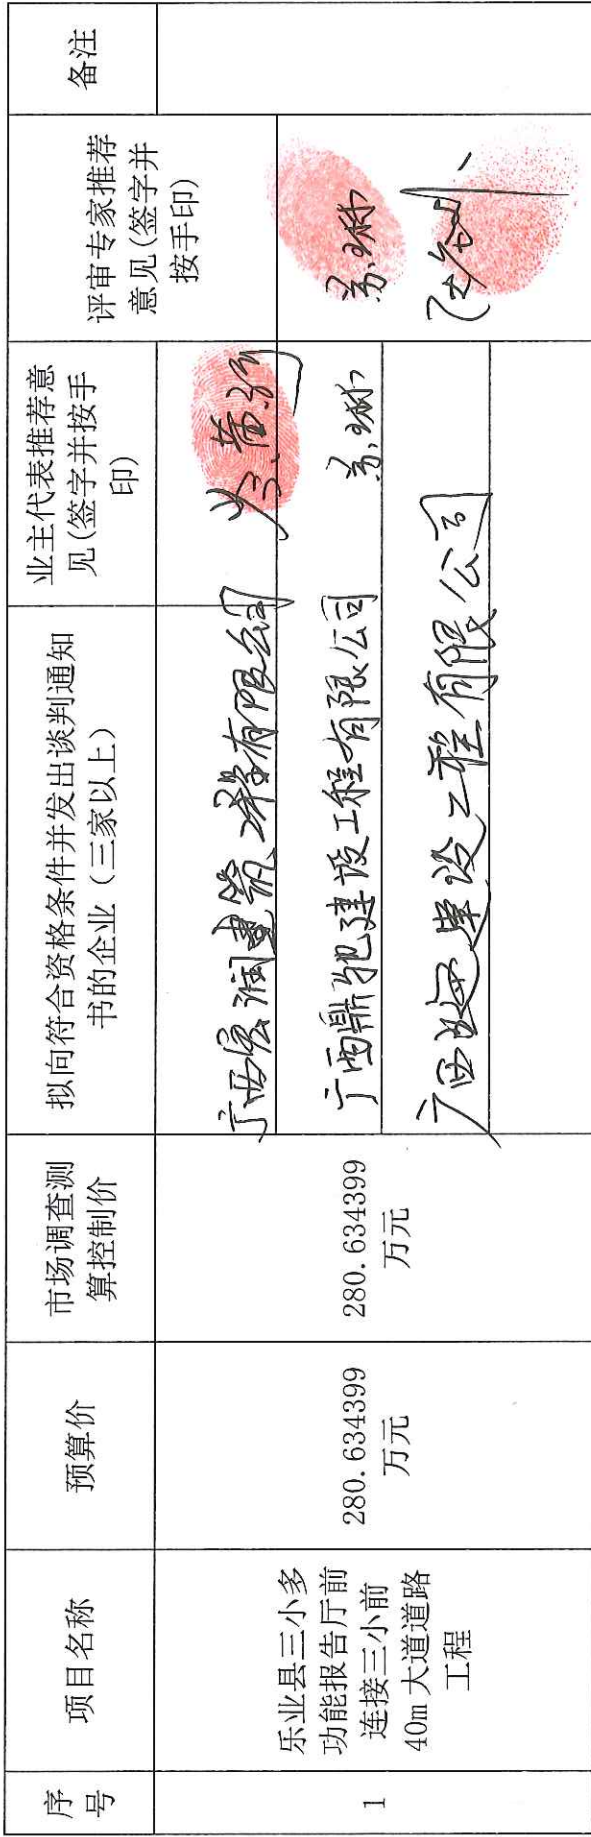 序
号
项目名称
预算价
市场调查测
算控制价
拟向符合资格条件并发出谈判通知
书的企业（三家以上）
业主代表推荐意
见(签字并按手
印)
评审专家推荐
意见(签字并
按手印)
备注
1
乐业县三小多
功能报告厅前
连接三小前
40m大道道路
工程
280.634399
万元
280.634399
万元
广西宏润建筑工程有限公司
广西鼎驰建设工程有限公司
广西 建设工程有限公司